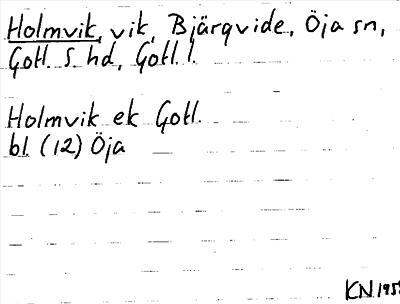 Holmvik, vik, Bjärgvide, Öja sn,
Gotl. S. hd, Gotl. l.
Holmvik ek Gotl.
bl. (12) Öja
KN